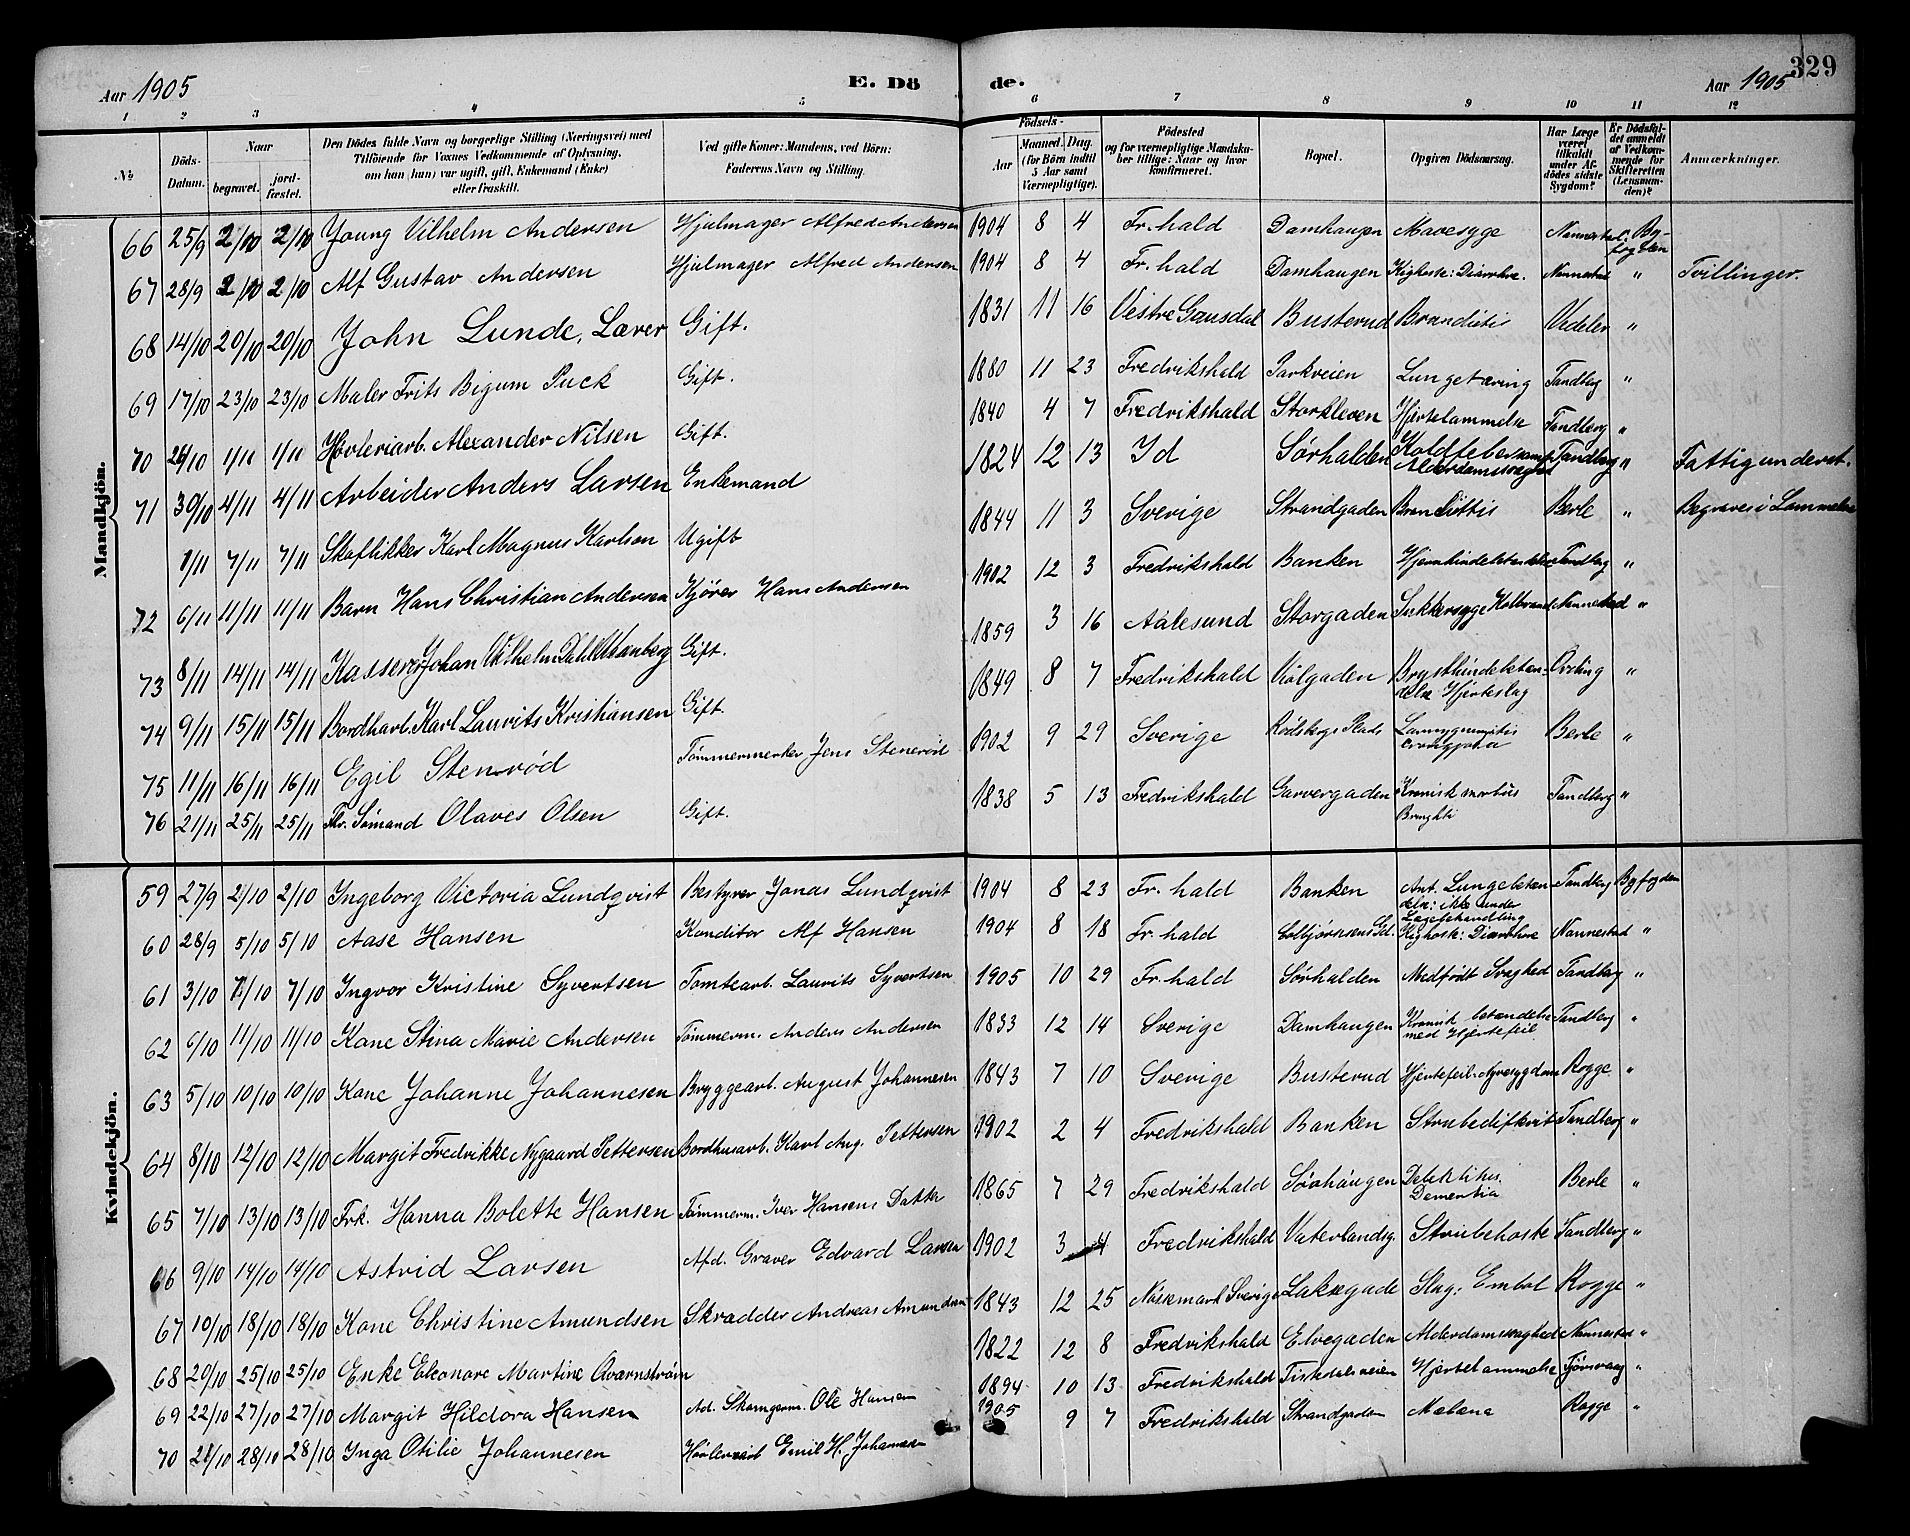 Aar 1905
E. Dö
de.
Aar 1905
329
1 2 3 4 5 6 7 8 9 10 11 12
№
Döds-Datum.
Naar
begravet.
jordfæstet.
Den Dödes fulde Navn og borgerlige Stilling (Næringsvei) med Tilföiende for Voxnes Vedkommende af Oplysning, om han (hun) var ugift, gift, Enkemand (Enke) eller fraskilt.
Ved gifte Koner: Mandens, ved Börn: Faderens Navn og Stilling.
Födsels-
Aar
Maaned. Dag. (for Börn indtil 5 Aar samt Værnepligtige).
Födested og for værnepligtige Mandskaber tillige: Naar og hvor konfirmeret.
Bopæl.
Opgiven Dödsaarsag.
Har Læge været tilkaldt under Afdödes sidste Sygdom?
Er Dödsfaldet anmeldt af Vedkommende for Skifteretten (Lensmanden)?
Anmærkninger.
Mandkjön.
66 25/9 2/10 2/10 Young Vilhelm Andersen Hjulmager Alfred Andersen 1904 8 4 Fr. hald Damhaugen Mavesyge Nannestad By-fogden
67 28/9 2/10 2/10 Alf Gustav Andersen Hjulmager Alfred Andersen 1904 8 4 Fr. hald Damhaugen Kighoste: Diarrhoe. Nannestad " Tvillinger.
68 14/10 20/10 20/10 John Lunde, Læver Gift. 1831 11 16 Vestre Gausdal Busterud Vedeler "
69 17/10 23/10 23/10 Maler Frits Bigum Puck Gift. 1880 11 23 Fredrikshald Parkveien Lungetæring Tandberg "
70 26/10 1/11 1/11 Høvleriarb. Alexander Nilsen Gift. 1840 4 7 Fredrikshald Storkleven Hjertelammelse Tandberg "
71 30/10 4/11 4/11 Arbeider Anders Larsen Enkemand 1824 12 13 Id Sørhalden Koldfeber samt Alderdomssvaghed Tandberg " Fattigunderst.
1/11 7/11 7/11 Skoflikker Karl Magnus Karlson Ugift 1844 11 3 Sverige Strandgaden Berle " Begraves i
72 6/11 11/11 11/11 Barn Hans Christian Andersen Kjører Hans Andersen 1902 12 3 Fredrikshald Banken Tandberg "
73 8/11 14/11 14/11 Kasserer Johan Vilhelm Gift. 1859 3 16 Aalesund Storgaden Sukkersyge Koldbrand Nannestad "
74 9/11 15/11 15/11 Bordharb. Karl Laurits Kristiansen Gift. 1849 8 7 Fredrikshald Violgaden Brysthindebetæn-delse Hjerteslag "
75 11/11 16/11 16/11 Egil Stenrød Tømmermerker Jens Stenerød 1902 9 29 Sverige Rødsbergs Plads Berle "
76 21/11 25/11 25/11 Fhv. Sømand Olaves Olsen Gift. 1838 5 13 Fredrikshald Garvergaden Kronisk Tandberg "
Kvindekjön.
59 27/9 2/10 2/10 Ingeborg Victoria Lundqvist Bestyrer Jonas Lundqvist 1904 8 23 Fr. hald Banken Ant. Lungebetæn delse: ikke under Lægebehandling Tandberg Byfogden
60 28/9 5/10 5/10 Aase Hansen Konditor Alf Hansen 1904 8 18 Fr. hald Colbjørnsens Gd. Kighoste: Diarrhoe Nannestad "
61 3/10 7/10 7/10 Ingvor Kristine Syvertsen Tomtearb. Laurits Syvertsen 1905 10 29 Fr. hald Sørhalden Medfødt Svaghed Tandberg "
62 6/10 11/10 11/10 Kone Stina Marie Andersen Tømmerm. Anders Andersen 1833 12 14 Sverige Damhaugen Kronisk betændelse med Hjertefeil Tandberg "
63 5/10 10/10 10/10 Kone Johanne Johannesen Bryggearb. August Johannesen 1843 7 10 Sverige Busterud Hjertefeil. Nyresygdom Rogge "
64 8/10 12/10 12/10 Margit Fredrikke Nygaard Pettersen Bordhusarb. Karl Aug. Pettersen 1902 2 4 Fredrikshald Banken Strubedifterit Tandberg "
65 7/10 13/10 13/10 Frk. Hanna Bolette Hansen Tømmerm. Iver Hansens Datter 1865 7 29 Fredrikshald Sørhaugen Dementia Berle "
66 9/10 14/10 14/10 Astrid Larsen Afd. Graver Edvard Larsen 1902 3 4 Fredrikshald Vaterlandsg. Strubehoste Tandberg "
67 10/10 18/10 18/10 Kone Christine Amundsen Skrædder Andreas Amundsen 1843 12 25 Nössemark Sverige Laksegade Slag: Embol Rogge "
68 20/10 25/10 25/10 Enke Eleonore Martine Qvarnstrøm 1822 12 8 Fredrikshald Elvegaden Alderdomssvaghed Nannestad "
69 22/10 27/10 27/10 Margit Hildora Hansen Ole Hansen 1894 10 13 Fredrikshald Tistedalsveien Hjertelammelse "
70 21/10 28/10 28/10 Inga Otilie Johannesen Høvleriarb Emil H. Johannesen 1905 9 7 Fredrikshald Strandgaden Melæna Rogge "